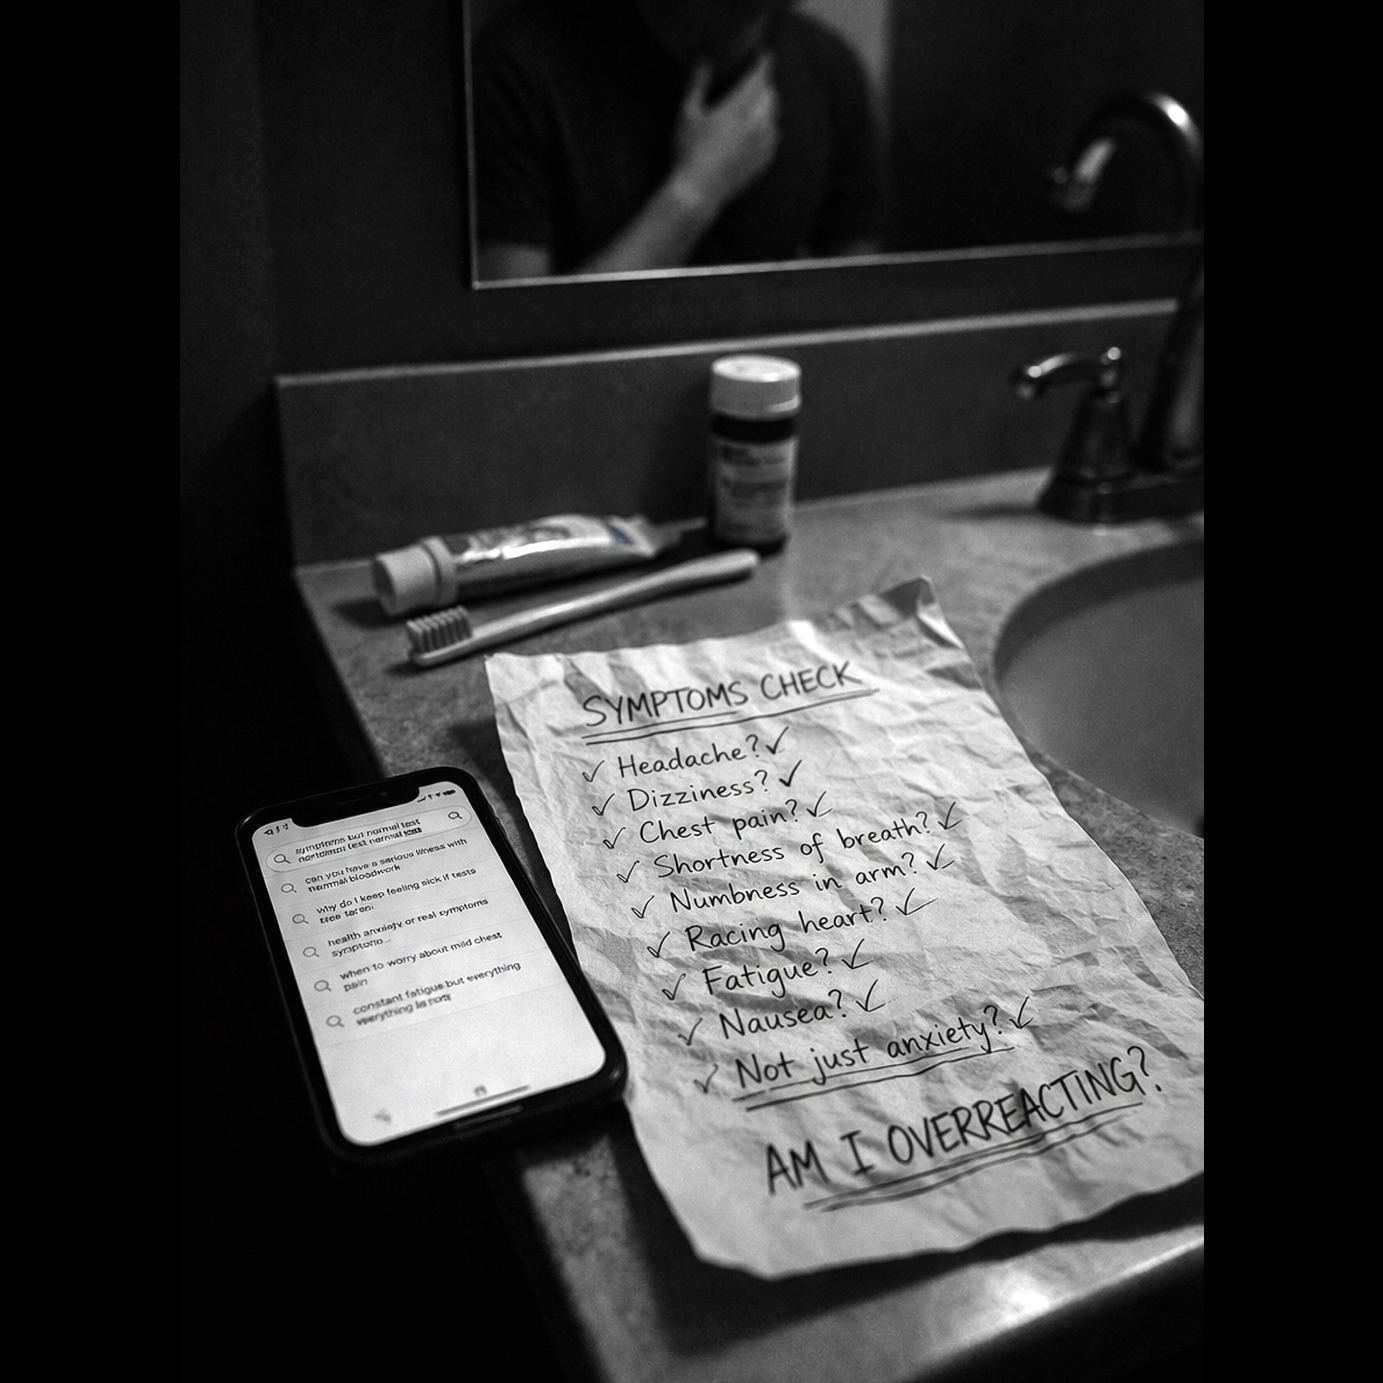 symptoms but normal test
can you have a serious illness with
normal bloodwork
why do I keep feeling sick if tests
health anxiety or real symptoms
when to worry about mild chest
pain
constant fatigue but everything
SYMPTOMS CHECK
✓ Headache? ✓
✓ Dizziness? ✓
✓ Chest pain? ✓
✓ Shortness of breath? ✓
✓ Numbness in arm? ✓
✓ Racing heart? ✓
✓ Fatigue? ✓
✓ Nausea? ✓
✓ Not just anxiety? ✓
AM I OVERREACTING?